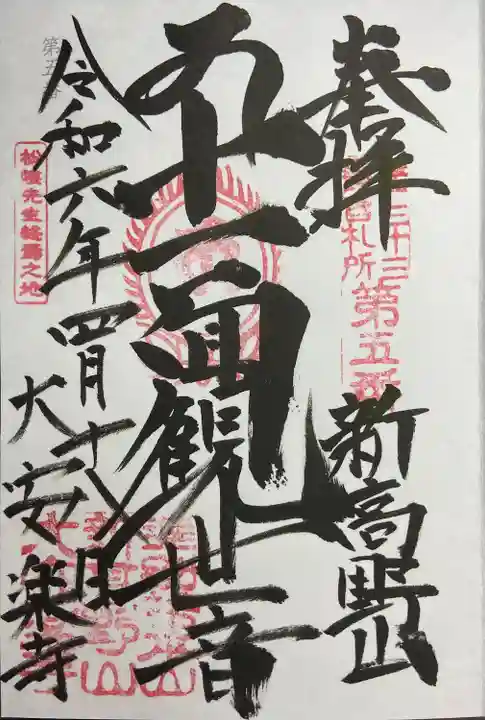 奉拝
三十三
札所第五番
新高野山
十一面観世音
令和六年四月十八日
大安楽寺
松陰先生終焉之地